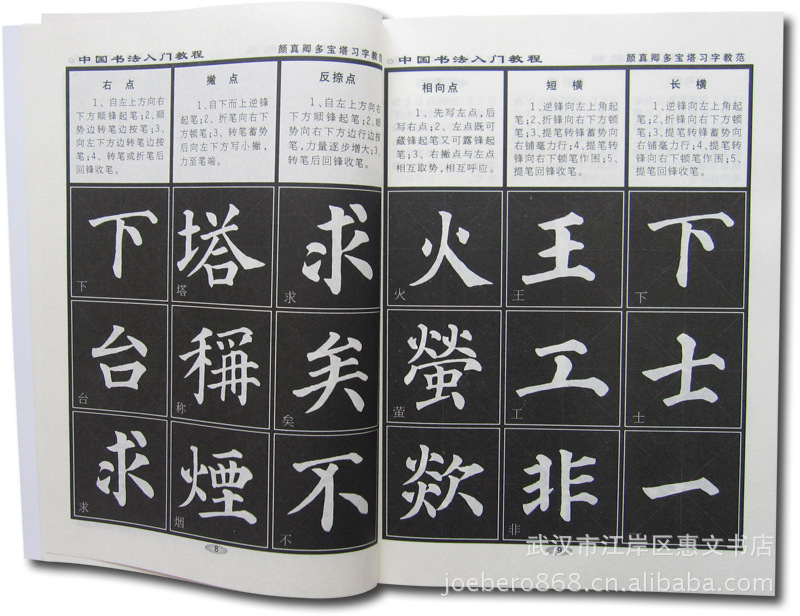 中国书法入门教程
颜真卿多宝塔习字教范
右点
1、自左上方向右
下方顺锋起笔;2、顺
势边转笔边按笔;3、
向左下方边转笔边按
笔;4、转笔或折笔后
回锋收笔。
撇点
1、自下而上逆锋
起笔;2、折笔向右下
方顿笔;3、转笔蓄势
后向左下方写小撇,
力至笔端。
反捺点
1、自左上方向右
下方顺锋起笔;2、顺
势向右下方边行边按
笔,力量逐步增大;3、
转笔后回锋收笔。
下
塔
求
下
塔
求
台
稱
矣
台
称
矣
求
煙
不
求
烟
不
8
中国书法入门教程
颜真卿多宝塔习字教范
相向点
1、先写左点,后
写右点;2、左点既可
藏锋起笔又可露锋起
笔;3、右撇点与左点
相互取势,相互呼应。
短横
1、逆锋向左上角起
笔;2、折锋向右下方顿
笔;3、提笔转锋蓄势向
右铺毫力行;4、提笔转
锋向右下顿笔作围;5、
提笔回锋收笔。
长横
1、逆锋向左上角起
笔;2、折锋向右下方顿
笔;3、提笔转锋蓄势向
右铺毫力行;4、提笔转
锋向右下顿笔作围;5、
提笔回锋收笔。
火
王
下
火
王
下
螢
工
士
萤
工
士
焱
非
一
非
9
武汉市江岸区惠文书店
joebero868.cn.alibaba.com